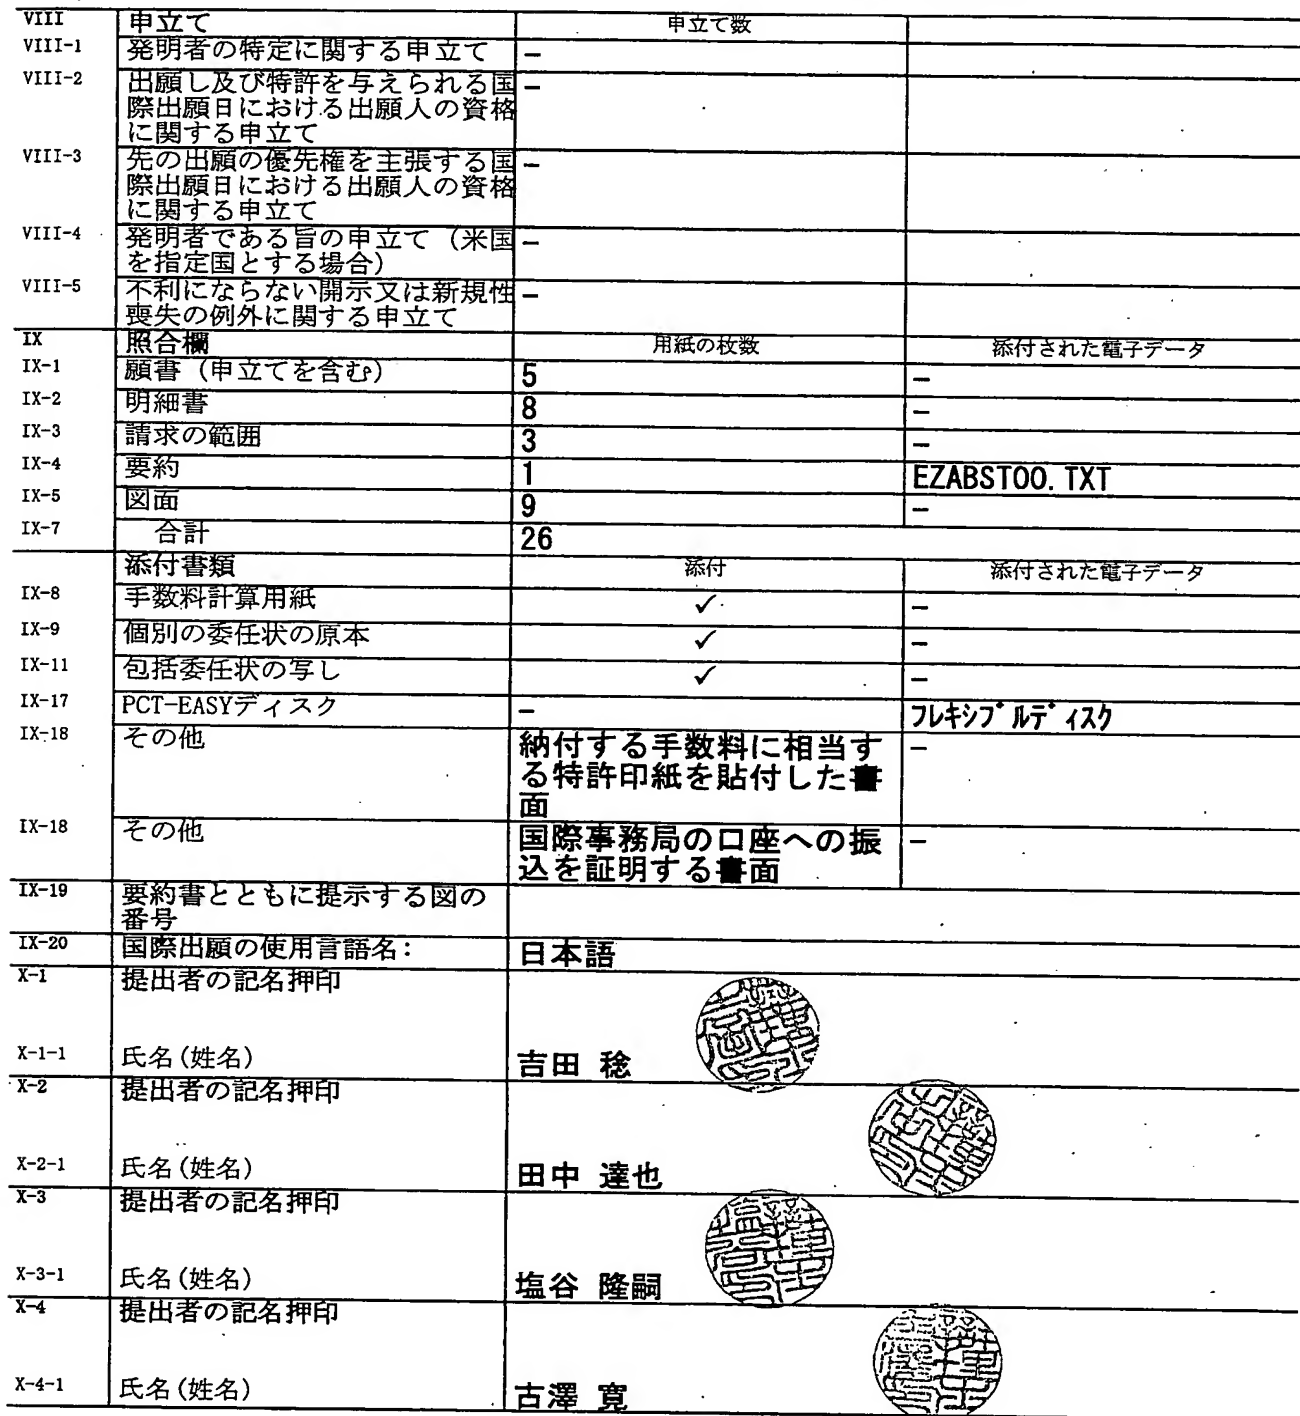 VIII 申立て 申立て数
VIII-1 発明者の特定に関する申立て –
VIII-2 出願し及び特許を与えられる国 –
際出願日における出願人の資格
に関する申立て
VIII-3 先の出願の優先権を主張する国 –
際出願日における出願人の資格
に関する申立て
VIII-4 発明者である旨の申立て（米国 –
を指定国とする場合）
VIII-5 不利にならない開示又は新規性 –
喪失の例外に関する申立て
IX 照合欄 用紙の枚数 添付された電子データ
IX-1 願書（申立てを含む） 5 –
IX-2 明細書 8 –
IX-3 請求の範囲 3 –
IX-4 要約 1 EZABST00.TXT
IX-5 図面 9 –
IX-7 合計 26
添付書類 添付 添付された電子データ
IX-8 手数料計算用紙 ✓ –
IX-9 個別の委任状の原本 ✓ –
IX-11 包括委任状の写し ✓ –
IX-17 PCT-EASYディスク – フレキシブルディスク
IX-18 その他 納付する手数料に相当す –
る特許印紙を貼付した書
面
IX-18 その他 国際事務局の口座への振 –
込を証明する書面
IX-19 要約書とともに提示する図の
番号
IX-20 国際出願の使用言語名： 日本語
X-1 提出者の記名押印
X-1-1 氏名(姓名) 吉田 稔
X-2 提出者の記名押印
X-2-1 氏名(姓名) 田中 達也
X-3 提出者の記名押印
X-3-1 氏名(姓名) 塩谷 隆嗣
X-4 提出者の記名押印
X-4-1 氏名(姓名) 古澤 寛